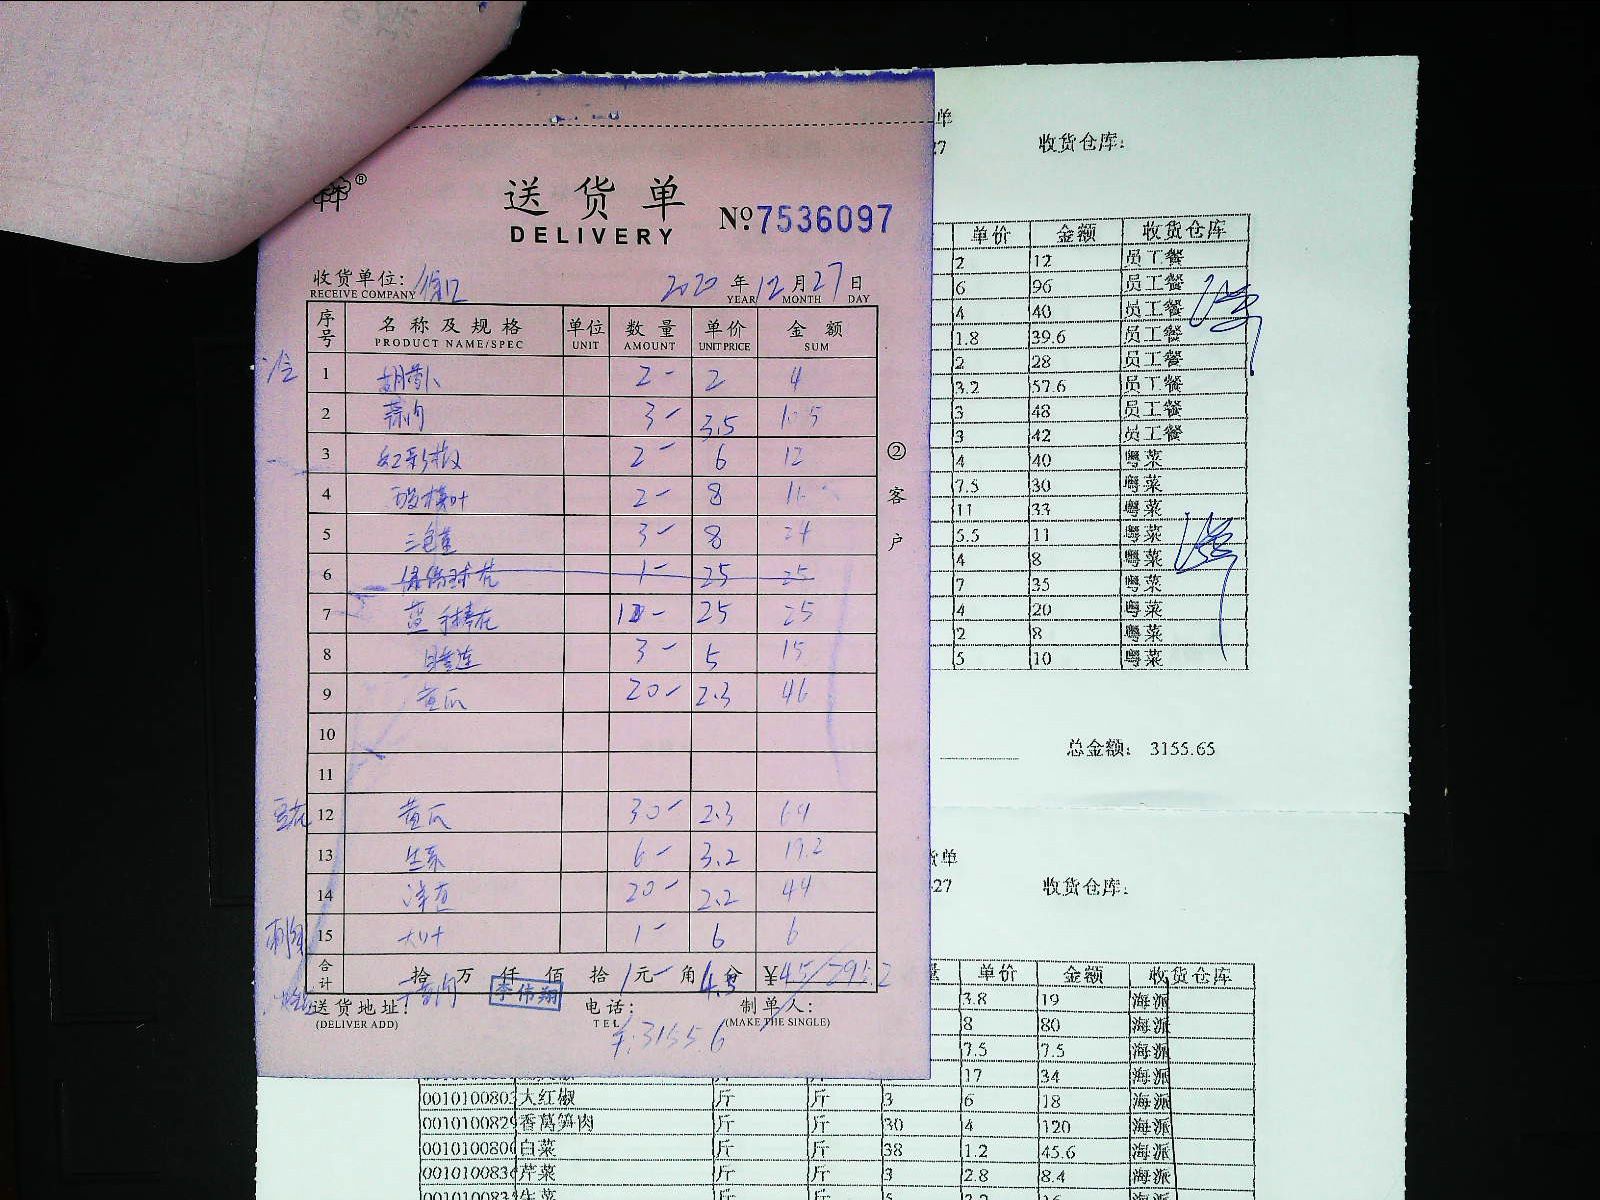 送货单
DELIVERY
№7536097
收货单位:
RECEIVE COMPANY
2020年12月27日
YEAR MONTH DAY
序号 名称及规格 单位 数量 单价 金额
PRODUCT NAME/SPEC UNIT AMOUNT UNIT PRICE SUM
1 2- 2 4
2 3- 3.5 10.5
3 红彩椒 2- 6 12
4 2- 8 16
5 三色堇 3- 8 24
6 1- 25 25
7 25 25
8 3- 5 15
9 黄瓜 20- 2.3 46
10
11
12 黄瓜 30- 2.3 69
13 生菜 6- 3.2 19.2
14 20- 2.2 44
15 大叶 1- 6 6
合计 拾万仟佰拾元角分 ¥
李伟翔
送货地址: 电话: 制单人:
(DELIVER ADD) TEL (MAKE THE SINGLE)
¥:3155.6
②客户
单
27 收货仓库:
单价 金额 收货仓库
2 12 员工餐
6 96 员工餐
4 40 员工餐
1.8 39.6 员工餐
2 28 员工餐
3.2 57.6 员工餐
3 48 员工餐
3 42 员工餐
4 40 粤菜
7.5 30 粤菜
11 33 粤菜
5.5 11 粤菜
4 8 粤菜
7 35 粤菜
4 20 粤菜
2 8 粤菜
5 10 粤菜
总金额: 3155.65
货单
27 收货仓库:
量 单价 金额 收货仓库
3.8 19 海派
8 80 海派
7.5 7.5 海派
17 34 海派
0010100803 大红椒 斤 斤 3 6 18 海派
0010100829 香莴笋肉 斤 斤 30 4 120 海派
001010080 白菜 斤 斤 38 1.2 45.6 海派
001010083 芹菜 斤 斤 3 2.8 8.4 海派
生菜 斤 斤 5 3.2 16 海派